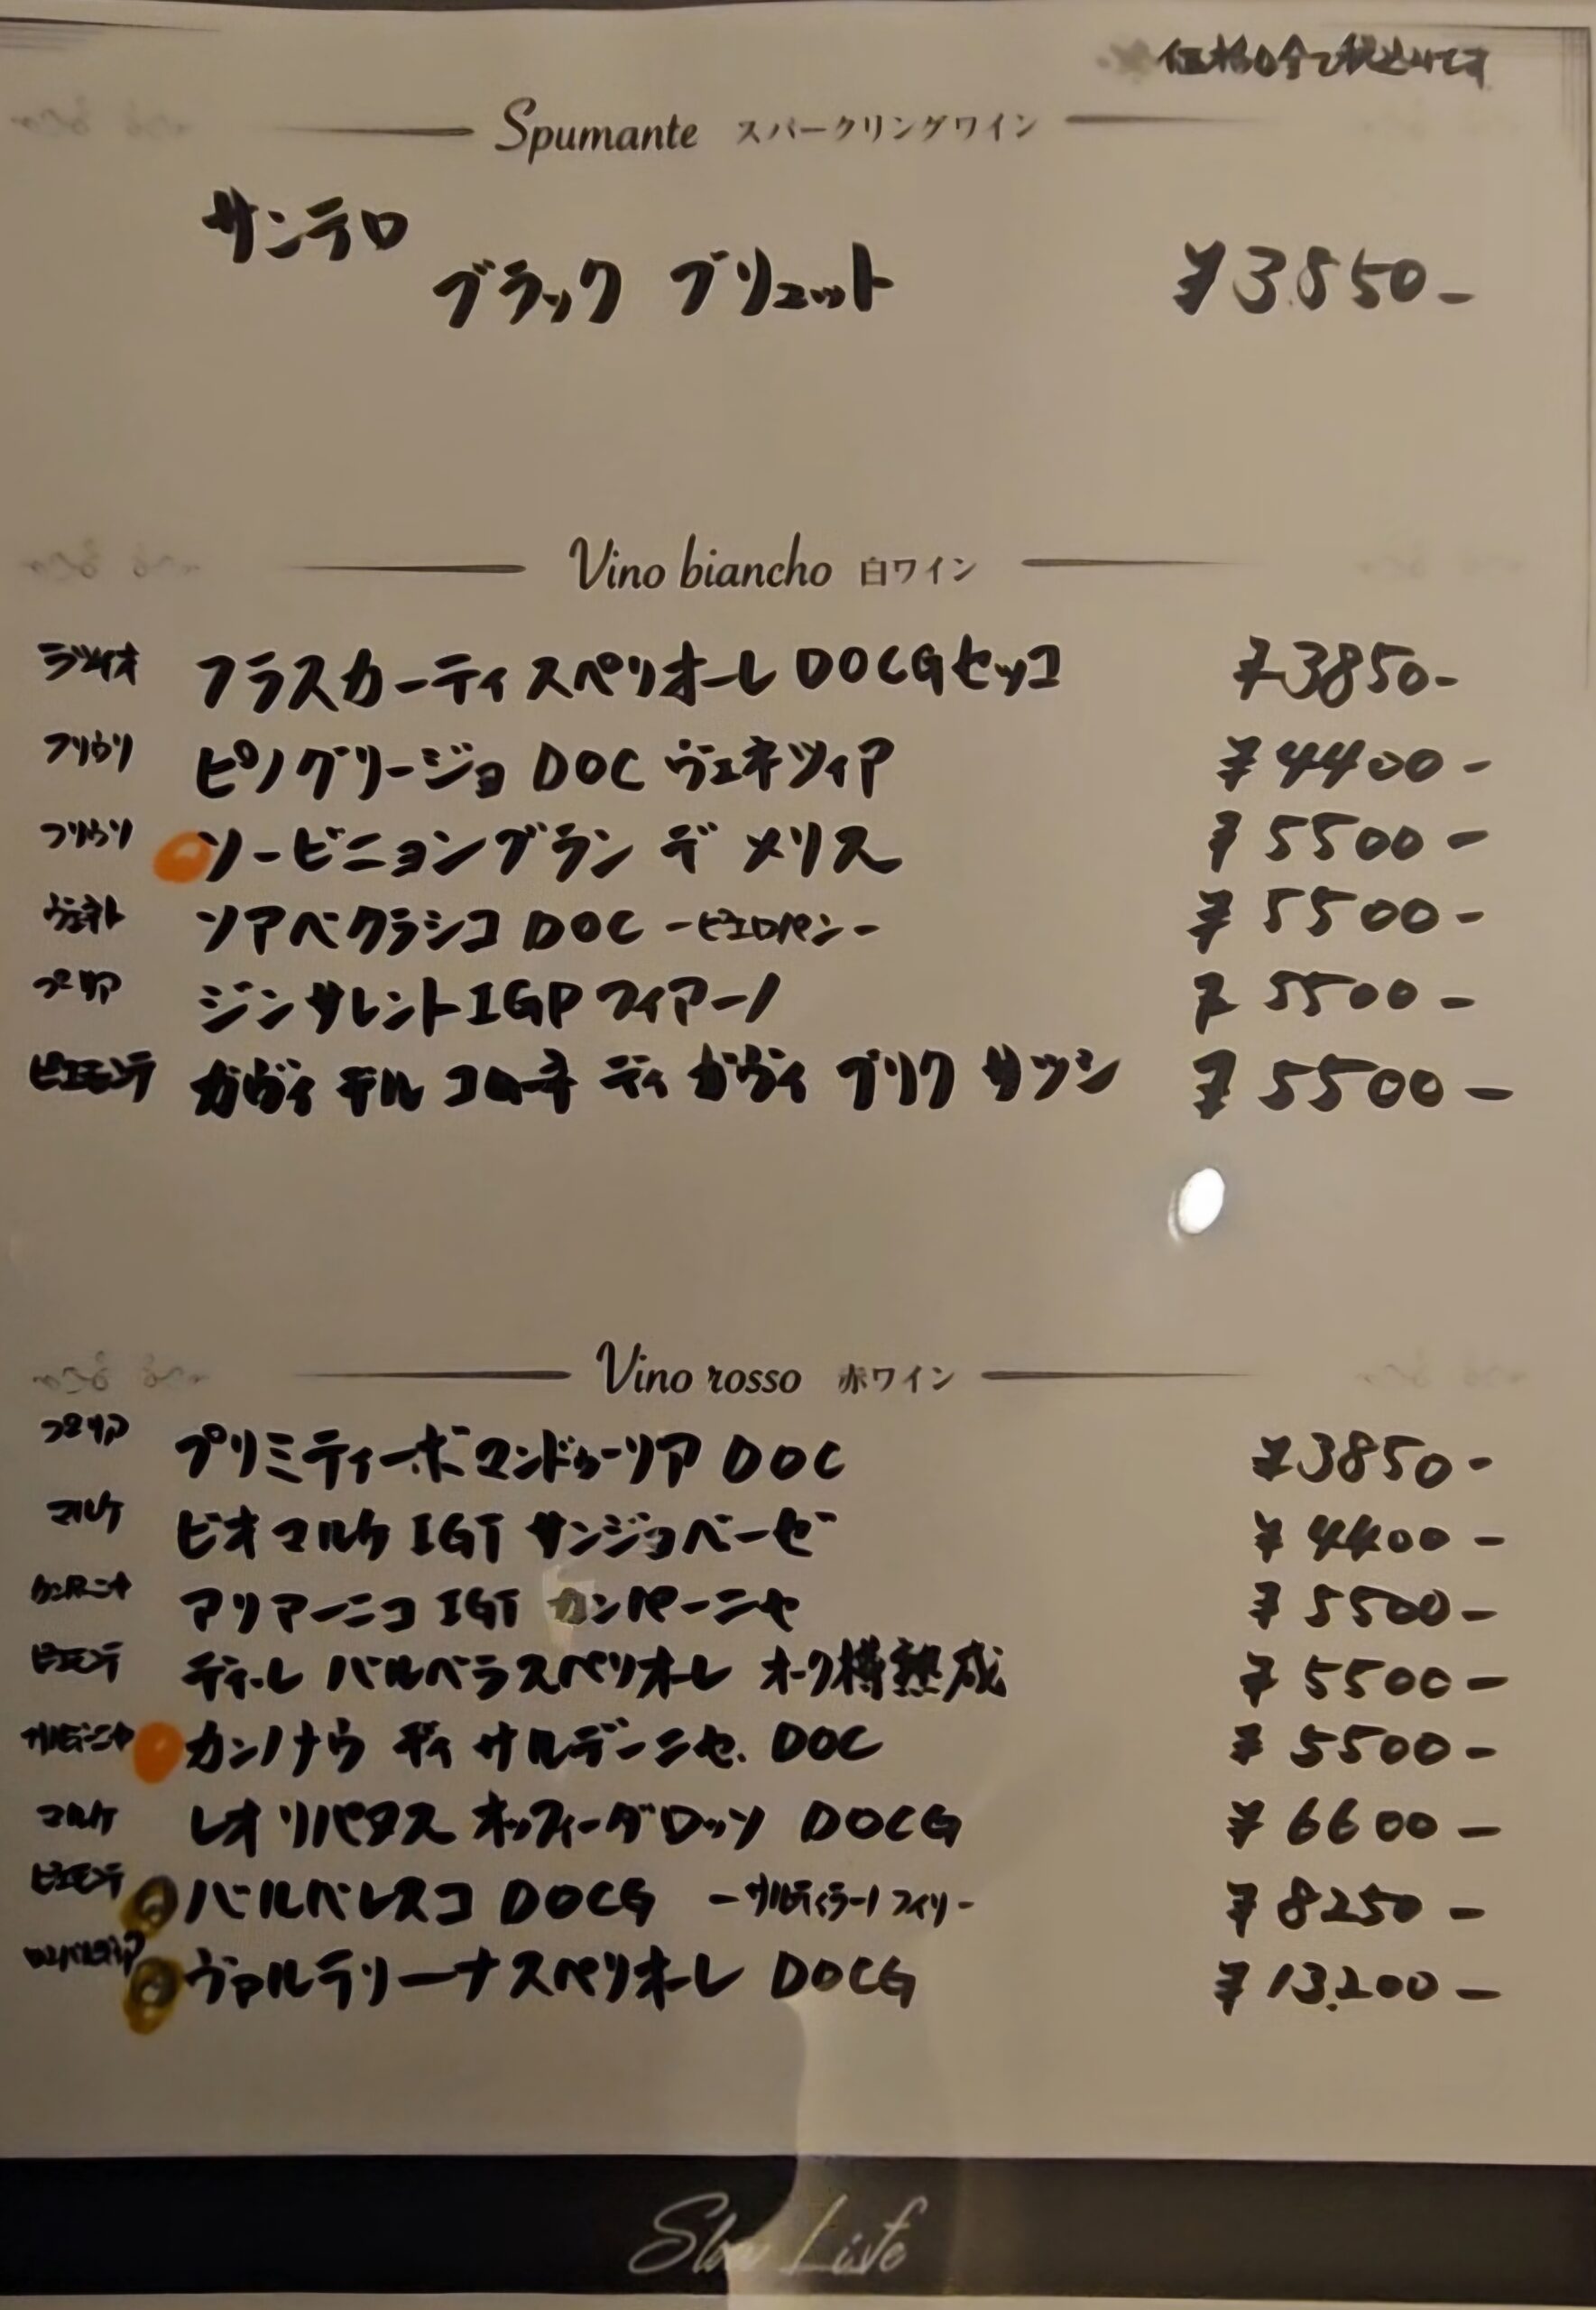 ※価格は全て税込みです
Spumante スパークリングワイン
サンテロ
ブラック ブリュット ¥3.850-
Vino biancho 白ワイン
ラツィオ フラスカーティ スペリオーレ DOCG セッコ ¥3850-
フリウリ ピノグリージョ DOC ヴェネツィア ¥4400-
フリウリ ソービニョンブラン デ メリス ¥5500-
ヴェネト ソアベクラシコ DOC -ピエロパン- ¥5500-
プーリア ジンサレント IGP フィアーノ ¥5500-
ピエモンテ ガヴィ デル コムーネ ディ ガヴィ ブリク サッシ ¥5500-
Vino rosso 赤ワイン
プーリア プリミティーボ マンドゥーリア DOC ¥3850-
マルケ ビオ マルケ IGT サンジョベーゼ ¥4400-
カンパーニャ アリアーニコ IGT カンパーニャ ¥5500-
ピエモンテ ティーレ バルベラスペリオーレ オーク樽熟成 ¥5500-
サルディーニャ カンノナウ ディ サルデーニャ DOC ¥5500-
マルケ レオ リパヌス オッフィーダロッソ DOCG ¥6600-
ピエモンテ バルバレスコ DOCG ¥8250-
ロンバルディア ヴァルテリーナ スペリオーレ DOCG ¥13.200-
Slow Life